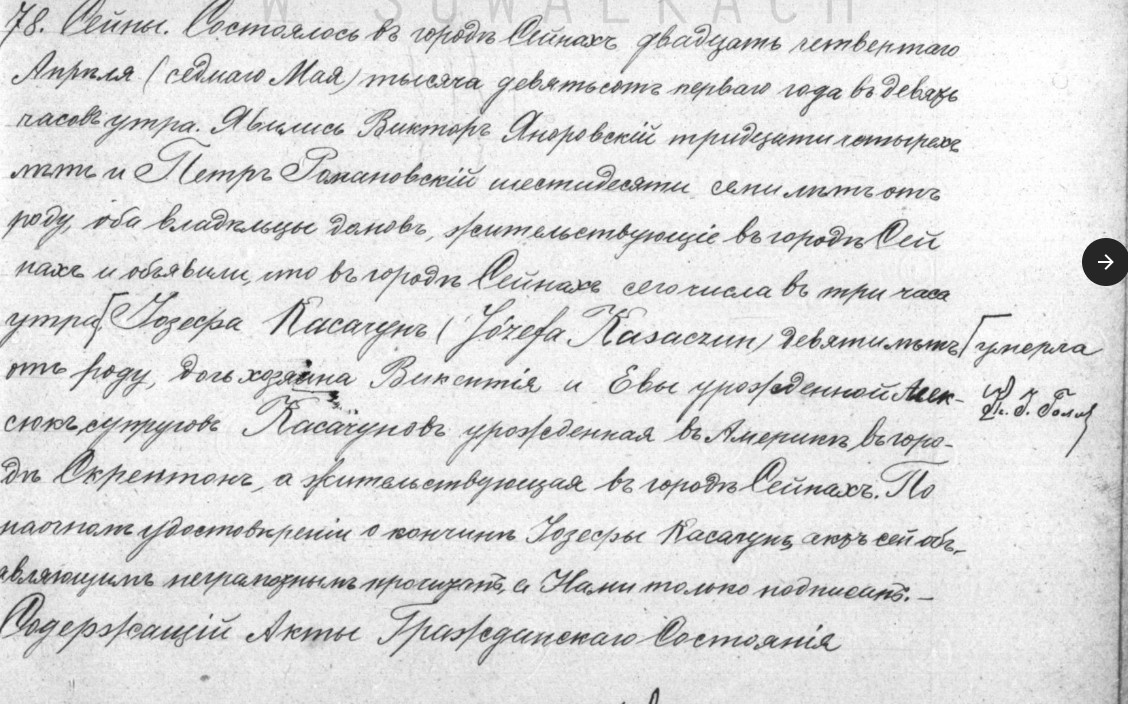 W SUWAŁKACH
78. Сейны. Состоялось въ городѣ Сейнахъ двадцать четвертаго
Апрѣля (седмаго Мая) тысяча девятьсотъ перваго года въ девять
часовъ утра. Явились Викторъ Яноровскій тридцати четырехъ
лѣтъ и Петръ Романовскій шестидесяти семи лѣтъ отъ
роду, оба владѣльцы домовъ, жительствующіе въ городѣ Сей
нахъ и объявили, что въ городѣ Сейнахъ сего числа въ три часа
утра Іозефа Касачунъ (Józefa Kasaczun) девяти лѣтъ умерла
отъ роду, дочь хозяина Викентія и Евы урожденной Алек-
сюкъ, супруговъ Касачуновъ урожденная въ Америкѣ въ горо-
дѣ Скрентонъ, а жительствующая въ городѣ Сейнахъ. По
наочномъ удостовѣреніи о кончинѣ Іозефы Касачунъ, актъ сей объ-
являющимъ неграмотнымъ прочитанъ, а Нами только подписанъ. —
Содержащій Акты Гражданскаго Состоянія